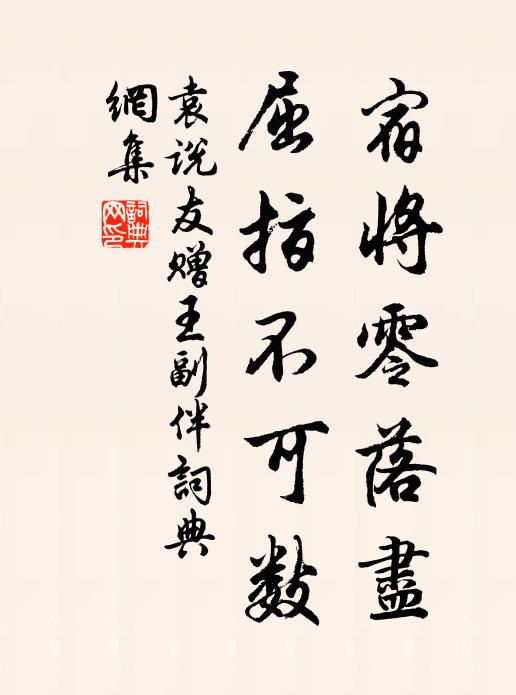 宿將零落盡
屈指不可數
袁說友贈王副伴詞典
網集
詞典網印